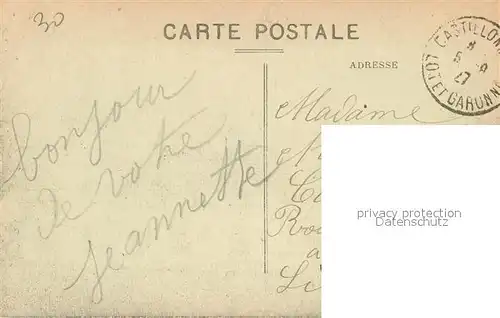 30
CARTE POSTALE
ADRESSE
CASTILLON
LOT ET GARONNE
bonjour
de votre
jeannette
Madame
privacy protection
Datenschutz